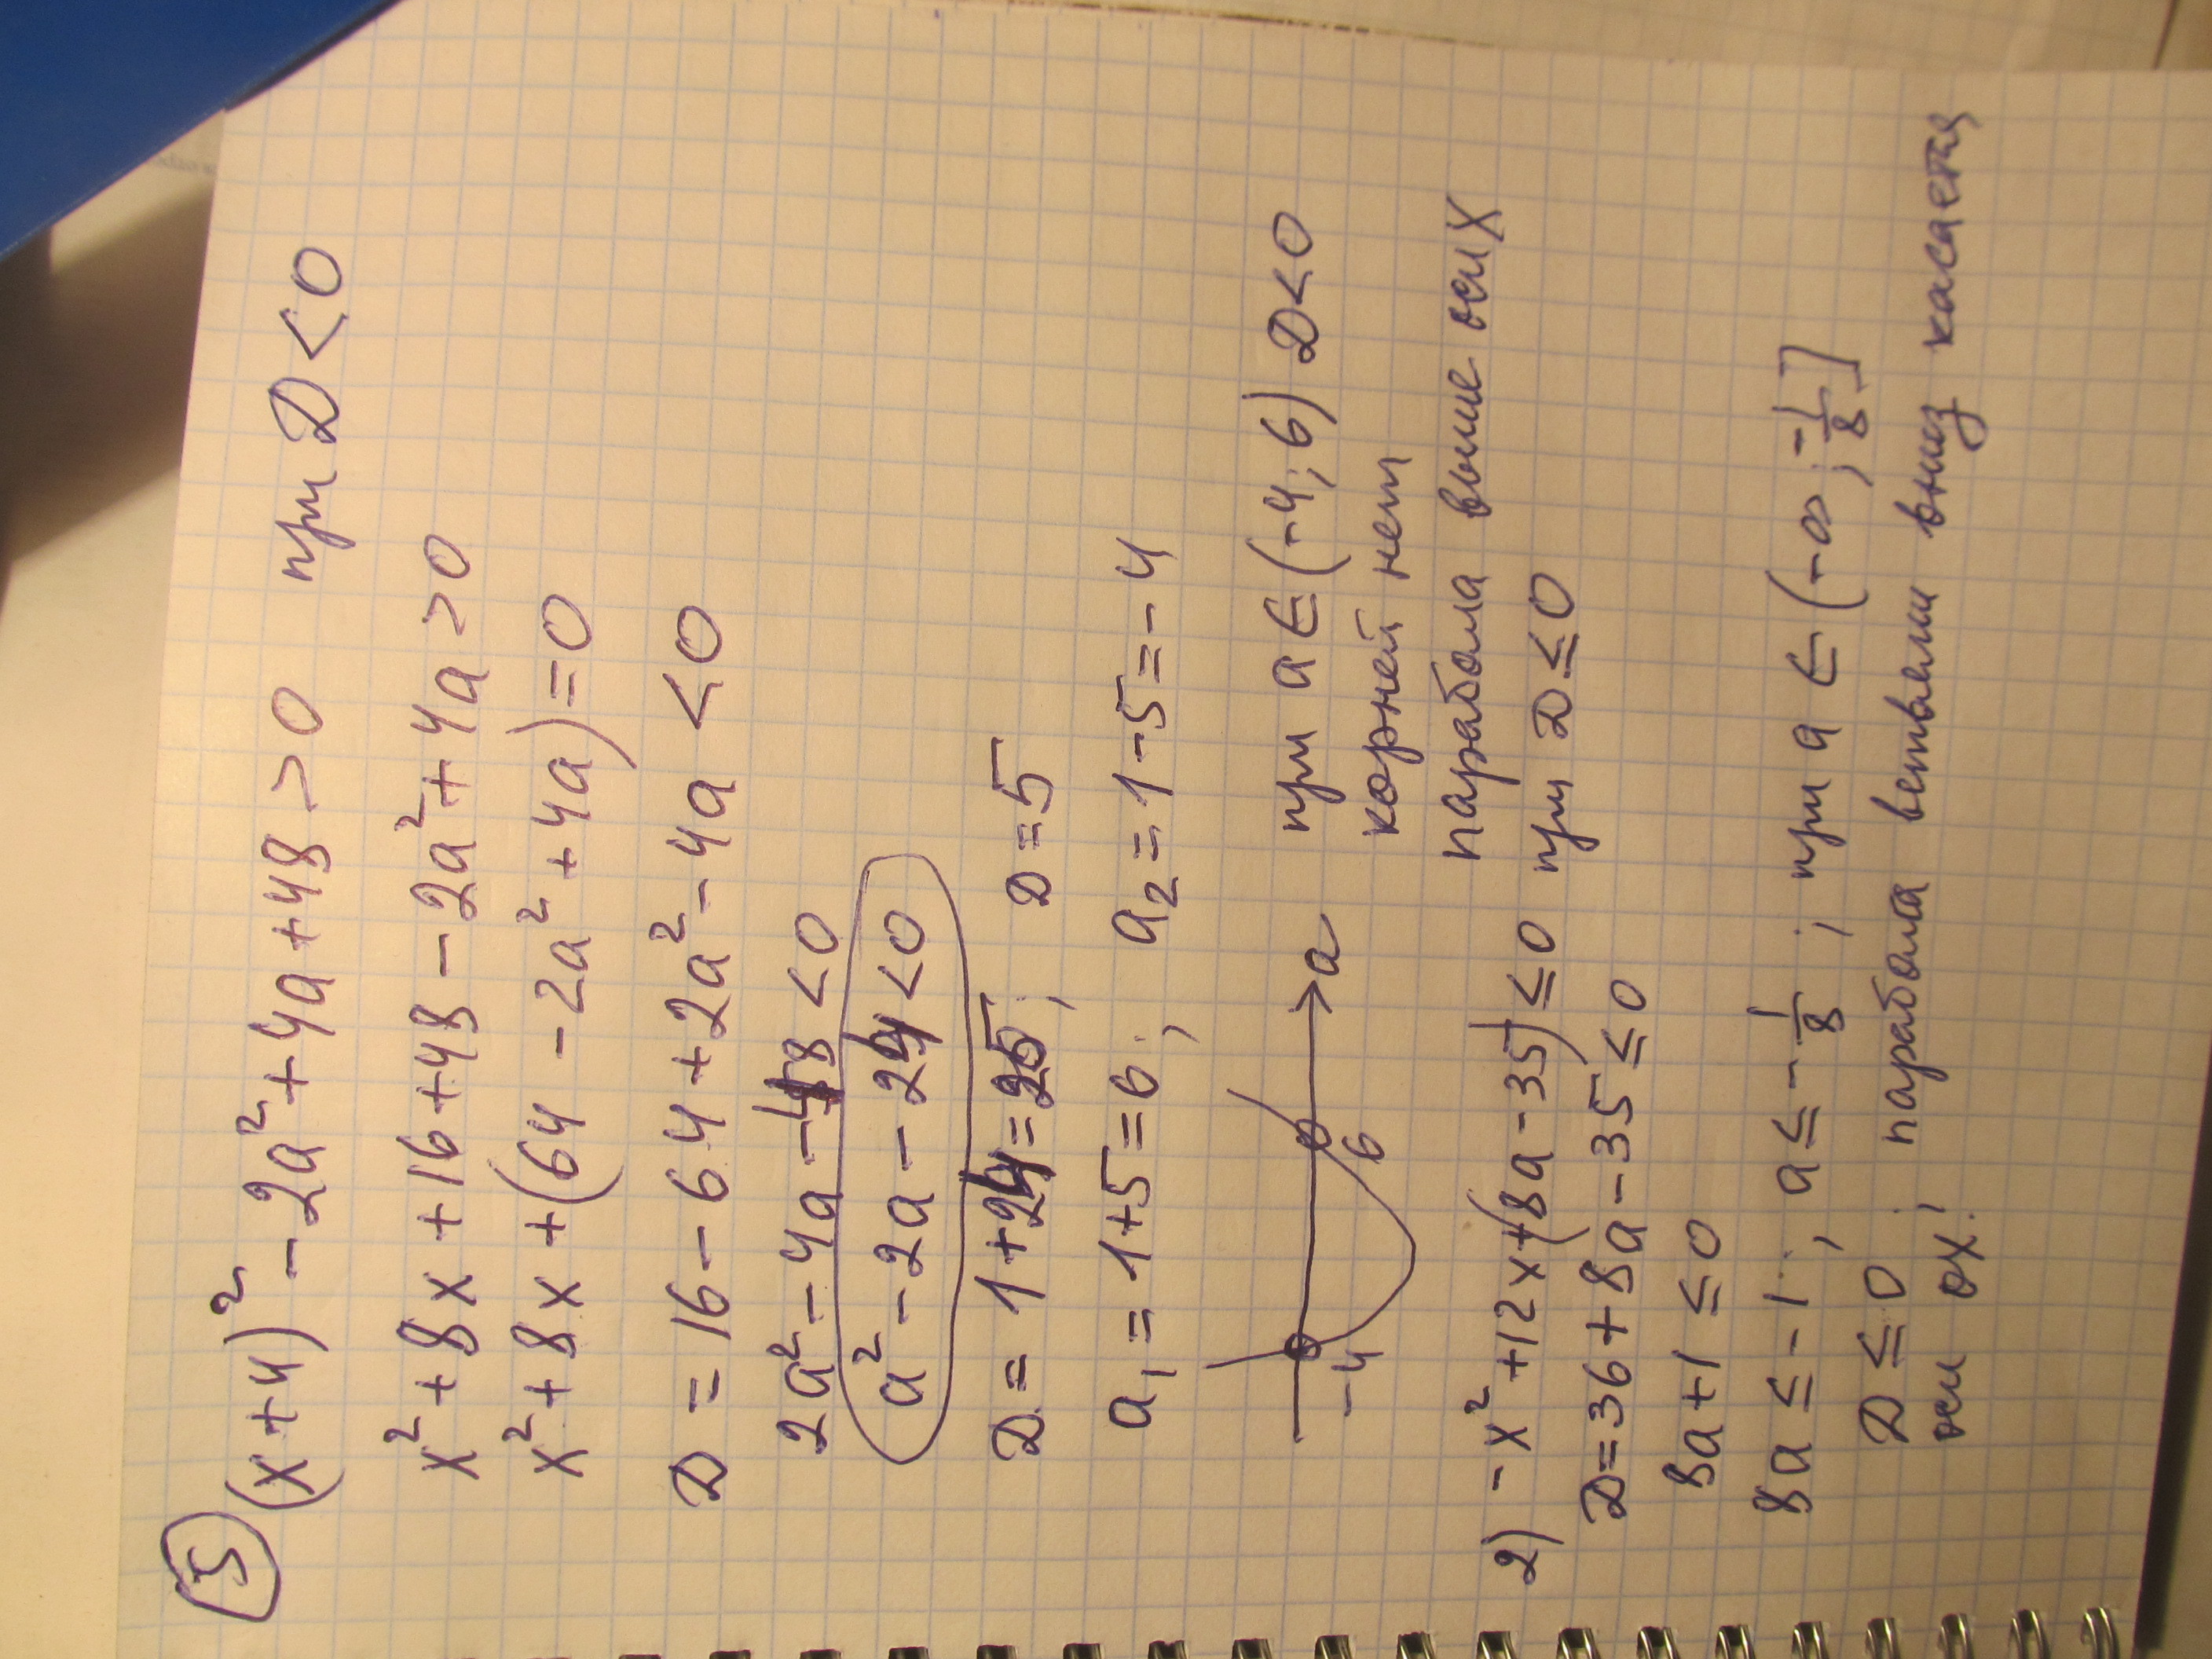 5 (x+4)² - 2a² + 4a + 48 > 0 при D < 0
x² + 8x + 16 + 48 - 2a² + 4a > 0
x² + 8x + (64 - 2a² + 4a) = 0
D = 16 - 64 + 2a² - 4a < 0
2a² - 4a - 48 < 0
a² - 2a - 24 < 0
D = 1 + 24 = 25; D = 5
a₁ = 1 + 5 = 6; a₂ = 1 - 5 = -4
-4 6 a
при a ∈ (-4; 6) D < 0
корней нет
парабола выше оси X
2) -x² + 12x + (8a - 35) ≤ 0 при D ≤ 0
D = 36 + 8a - 35 ≤ 0
8a + 1 ≤ 0
8a ≤ -1; a ≤ -1/8; при a ∈ (-∞; -1/8]
D ≤ 0; парабола ветвями вниз касается
оси ox!